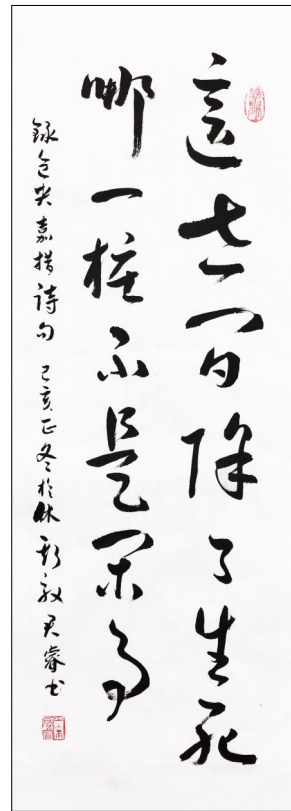 這世間除了生死
哪一樁不是閑事
錄仓央嘉措詩句 己亥正冬於 君睿书